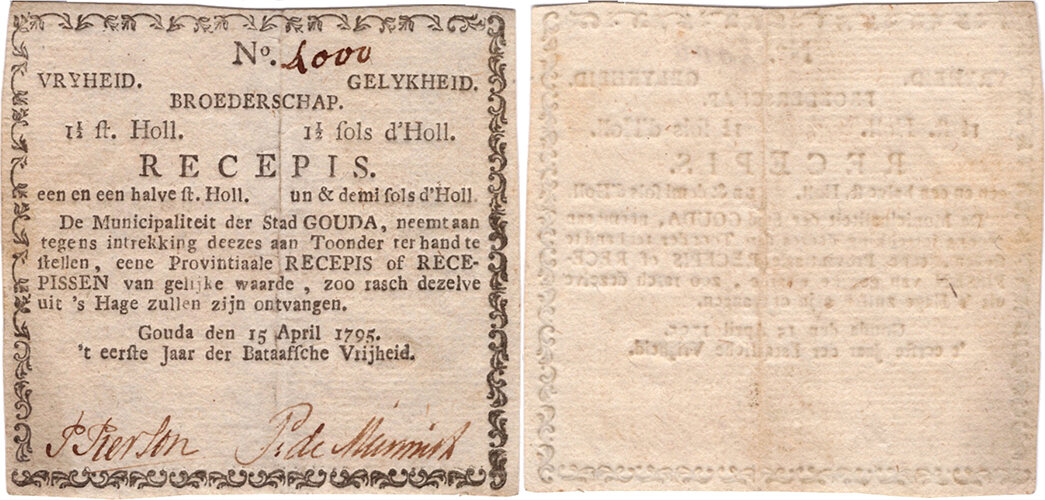 No. 4000
VRYHEID. GELYKHEID.
BROEDERSCHAP.
1½ ſt. Holl. 1½ ſols d'Holl.
RECEPIS.
een en een halve ſt. Holl. un & demi ſols d'Holl.
De Municipaliteit der Stad GOUDA, neemt aan
tegens intrekking deezes aan Toonder ter hand te
ſtellen, eene Provintiaale RECEPIS of RECE-
PISSEN van gelijke waarde, zoo rasch dezelve
uit 's Hage zullen zijn ontvangen.
Gouda den 15 April 1795.
't eerſte Jaar der Bataafſche Vrijheid.
P. de